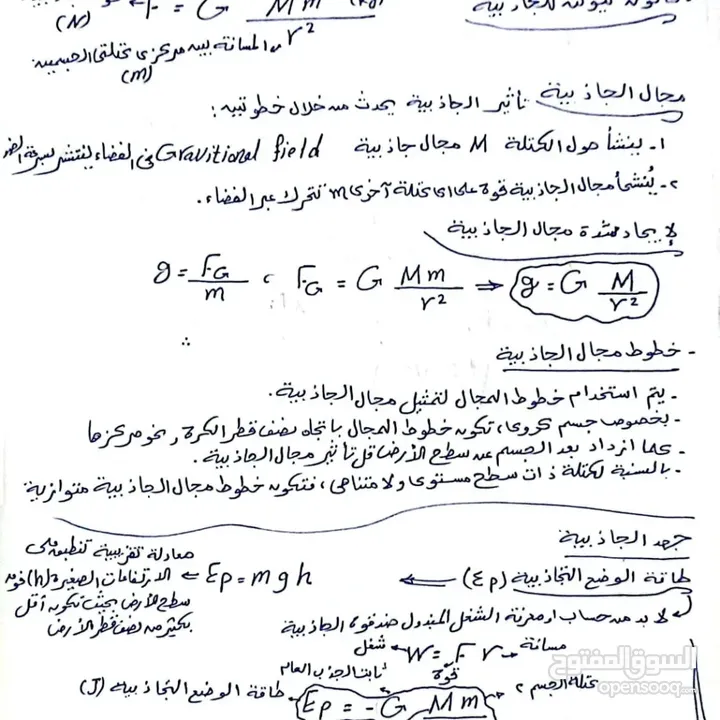 F = G Mm / r² (kg)
(N)
المسافة بين مركزي كتلتي الجسمين
(m)
مجال الجاذبية تأثير الجاذبية يحدث من خلال خطوتين:
١- ينشأ حول الكتلة M مجال جاذبية Gravitional field في الفضاء لينتشر بسرعة الضوء
٢- يُنشئ مجال الجاذبية قوة على أي كتلة أخرى m تتحرك عبر الفضاء.
لإيجاد شدة مجال الجاذبية
g = F_G / m ، F_G = G Mm / r² ⇒ g = G M / r²
- خطوط مجال الجاذبية
- يتم استخدام خطوط المجال لتمثيل مجال الجاذبية.
- بخصوص جسم كروي، تكون خطوط المجال باتجاه نصف قطر الكرة ونحو مركزها
- كما ازداد بعد الجسم عن سطح الأرض قل تأثير مجال الجاذبية.
- بالنسبة لكتلة ذات سطح مستوي ولا متناهي، فتكون خطوط مجال الجاذبية متوازية
جهد الجاذبية
طاقة الوضع التجاذبية (Ep) ⇐ Ep = mgh ⇐ معادلة تقريبية تنطبق على
الارتفاعات الصغيرة (h) فوق
سطح الأرض بحيث تكون أقل
بكثير من نصف قطر الأرض
لا بد من حساب أو معرفة الشغل المبذول ضد قوة الجاذبية
شغل W = F r مسافة
قوة
ثابت الجذب العام
كتلة الجسم 2
طاقة الوضع التجاذبية (J) Ep = - G Mm
السوق المفتوح
opensooq.com